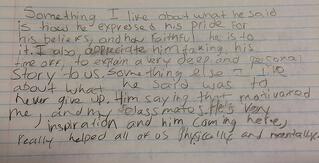 Something I like about what he said
is how he expressed his pride for
his beliefs, and how faithful he is to
it. I also, appreciate him taking, his
time off, to explain a very deep and personal
story to us. Something else I like
about what he said was to
never give up. Him saying that motivated
me, and my classmates. He's very
inspiration and him coming here,
really helped all of us physically and mentally.